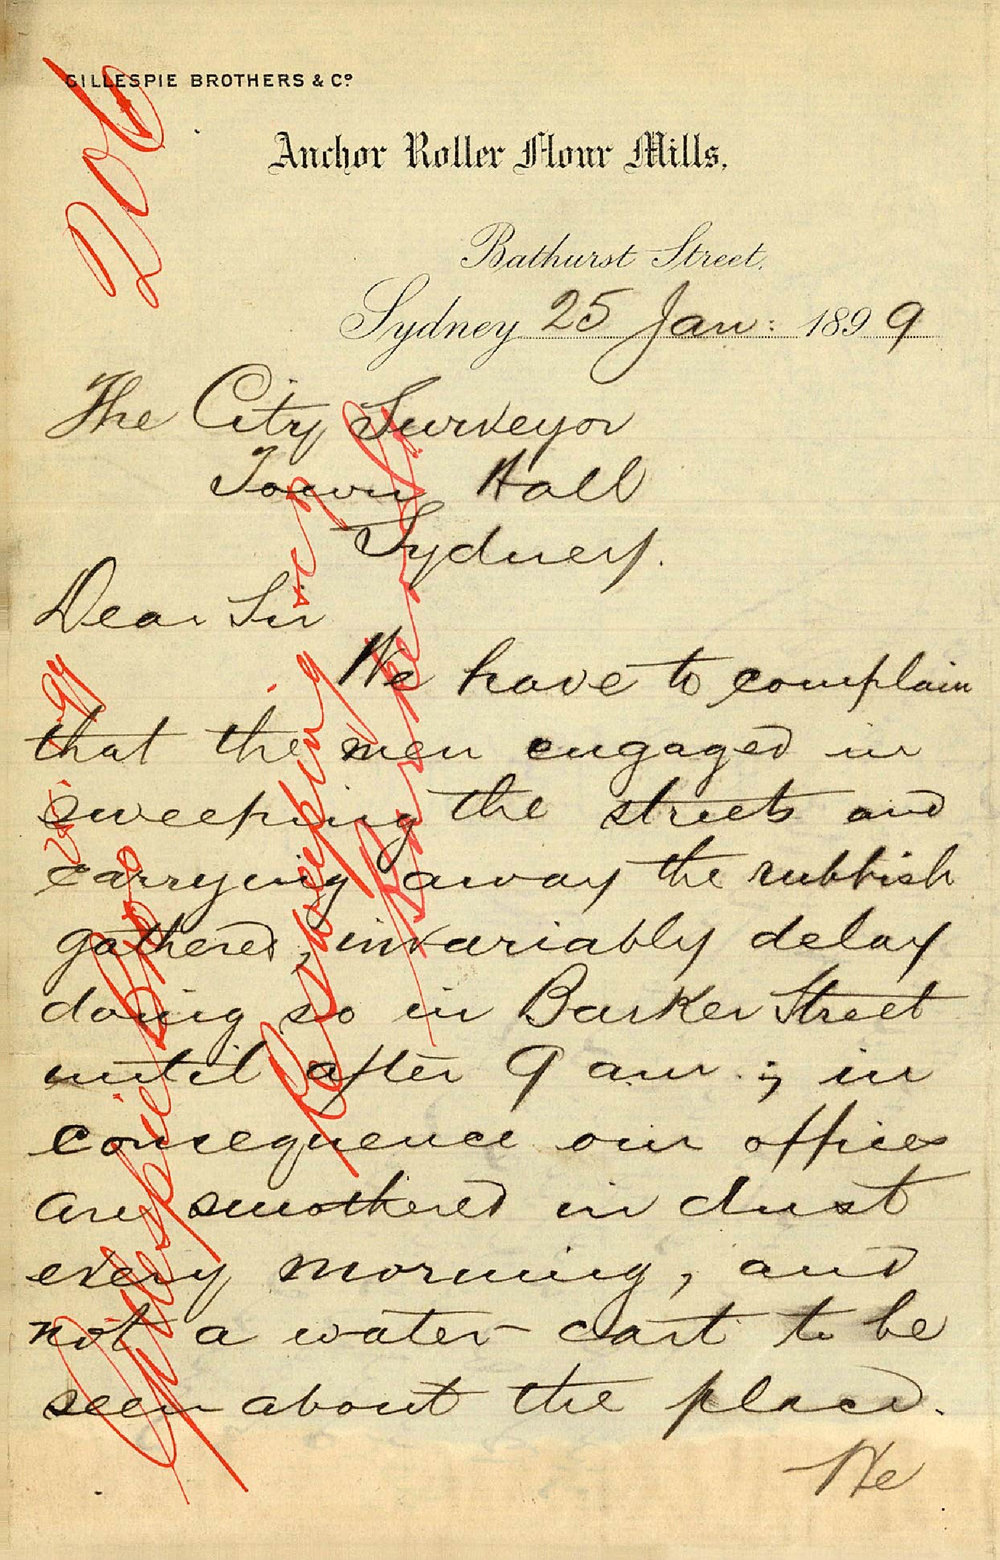 GILLESPIE BROTHERS & Cº
Anchor Roller Flour Mills,
Bathurst Street,
Sydney 25 Jan: 1899
The City Surveyor
Town Hall
Sydney.
Dear Sir
We have to complain
that the men engaged in
sweeping the streets and
carrying away the rubbish
gathered, invariably delay
doing so in Barker Street
until after 9 am ; in
consequence our offices
are smothered in dust
every morning, and
not a water-cart to be
seen about the place.
We
206
Gillespie Bros
Re sweeping of
Barker St